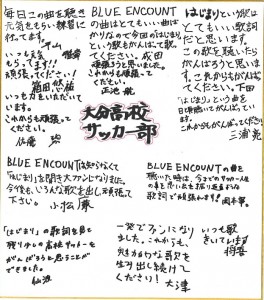 毎日この曲を聴き
元気をもらい練習
行ってます。
いつも元気
もらってます!!
頑張ってください!
箱田悠佑
いつも力をいただいて
います。
これからも頑張って
ください。
佐藤
BLUE ENCOUNT
の曲はとてもいい曲ば
かりなので今回のはじまり
という歌もがんばって歌っ
てください。成田
頑張ろうと思いました。
これからも頑張って
ください。
はじまりという歌は
とてもいい歌詞
だと思います。
この歌を聴いたら
がんばろうと思いま
す。これからもがんば
ってください。下田
「はじまり」という曲を
日々聴いてがんばってい
ます。
これからもがんばってください。
三浦
大分高校
サッカー部
BLUE ENCOUNTは知らなくて
「はじまり」を聞き大ファンになりました。
今後も、いろんな歌を出し、頑張って
下さい。
小松
BLUE ENCOUNTの曲を
聴いた時は、今までのサッカー人生
の事を思い出し
歌詞で頑張れます!!
「はじまり」の歌詞を見て
残り少しの高校サッカーを
がんばろうと思うことが
できました。
仙波
一発でファンになり
ました。これからも、
魅力的な歌を
生み出し続けて
ください! 大津
いつも聴
きています
将吾